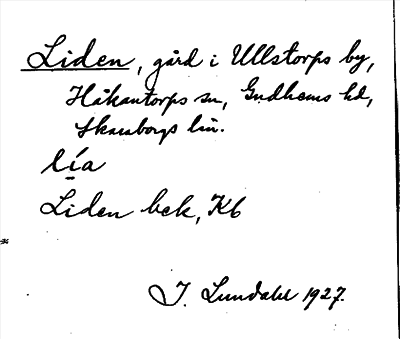 Liden, gård i Ullstorps by,
Håkantorps sn, Gudhems hd,
Skaraborgs län.
lía
Liden bek, Kb
J. Lundahl 1927.